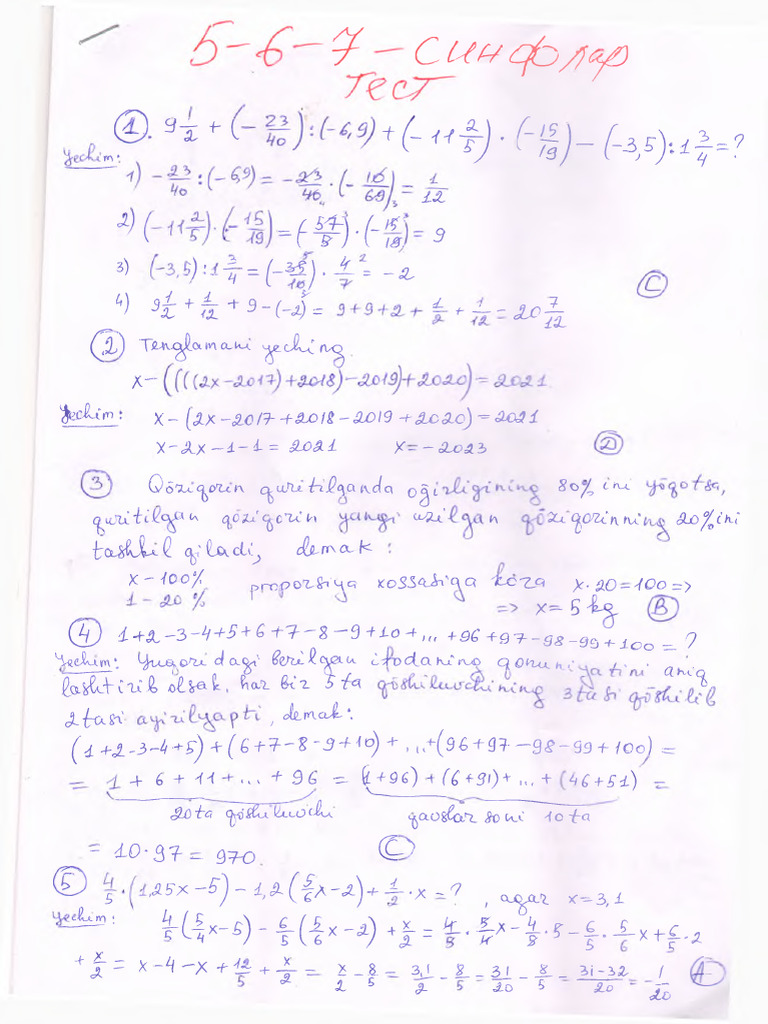 5-6-7-синфлар
тест
1. 9 1/2 + (-23/40):(-6,9) + (-11 2/5)·(-15/19) - (-3,5):1 3/4 = ?
Yechim:
1) -23/40:(-69) = -23/40·(-10/69) = 1/12
2) (-11 2/5)·(-15/19) = (-57/5)·(-15/19) = 9
3) (-3,5):1 3/4 = (-35/10)·4/7 = -2
4) 9 1/2 + 1/12 + 9-(-2) = 9+9+2+1/2+1/12 = 20 7/12 C
2 Tenglamani yeching.
x-((((2x-2017)+2018)-2019)+2020) = 2021
Yechim: x-(2x-2017+2018-2019+2020) = 2021
x-2x-1-1 = 2021 x=-2023 D
3 Qōziqorin quritilganda oğirligining 80% ini yōqotsa,
quritilgan qōziqorin yangi uzilgan qōziqorinning 20% ini
tashkil qiladi, demak:
x-100%
1-20% proporsiya xossasiga kōra x·20=100=>
=> x=5kg B
4 1+2-3-4+5+6+7-8-9+10+...+96+97-98-99+100=?
Yechim: Yuqoridagi berilgan ifodaning qonuniyatini aniq
lashtirib olsak. har biz 5 ta qōshiluvchining 3tasi qōshilib
2tasi ayirilyapti, demak:
(1+2-3-4+5)+(6+7-8-9+10)+...+(96+97-98-99+100)=
= 1+6+11+...+96 = (1+96)+(6+91)+...+(46+51) =
20ta qōshiluvchi qavslar soni 10 ta
= 10·97 = 970. C
5 4/5·(1,25x-5)-1,2(5/6x-2)+1/2·x=? , agar x=3,1
Yechim: 4/5(5/4x-5)-6/5(5/6x-2)+x/2 = 4/5·5/4x-4/5·5-6/5·5/6x+6/5·2
+x/2 = x-4-x+12/5+x/2 = x/2-8/5 = 3,1/2-8/5 = 31/20-8/5 = 31-32/20 = -1/20 A